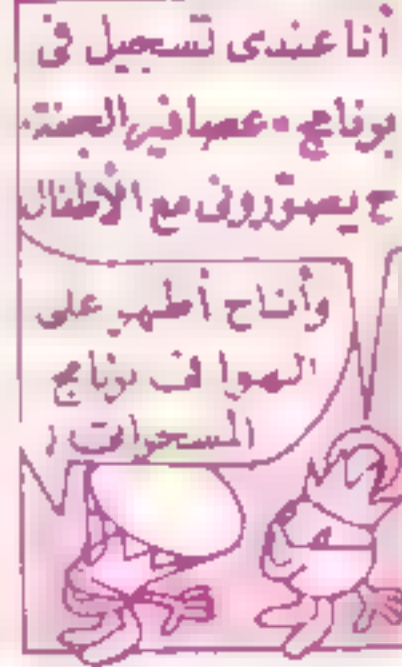 أنا عندى تسجيل فى
برنامج «عصافير الجنة»
ح يصورونى مع الأطفال
وأنا ح أظهر على
الهوا ف برنامج